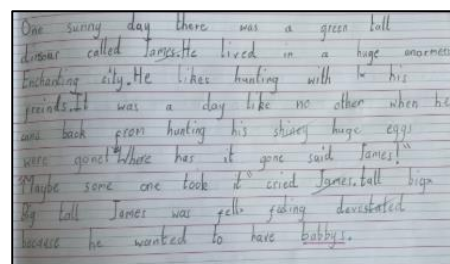 One sunny day there was a green tall
dinsour called James. He lived in a huge enormess
Enchanting city. He likes hunting with his
freinds. It was a day like no other when he
was back from hunting his shiney huge eggs
were gone! "Where has it gone said James!"
"Maybe some one took it" cried James. tall big
Big tall James was felling devestated
because he wanted to have babbys.